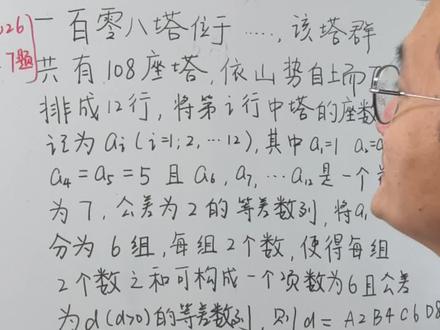 026
7题
一百零八塔位于……,该塔群
共有108座塔,依山势自上而
排成12行,将第i行中塔的座数
记为ai(i=1,2,…12),其中a1=1 a2=a
a4=a5=5 且a6,a7,…a12是一个
为7,公差为2的等差数列,将a1
分为6组,每组2个数,使得每组
2个数之和可构成一个项数为6且公差
为d(d>0)的等差数列,则d= A2 B4 C6 D8